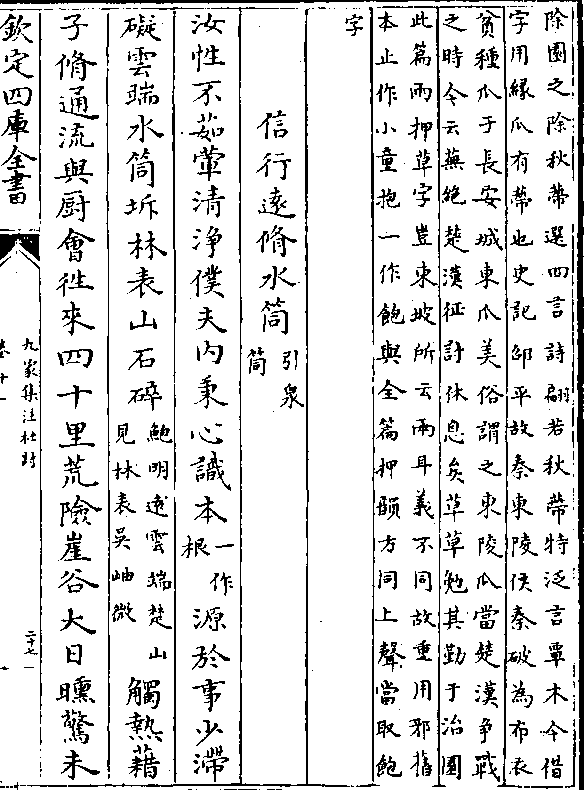 除園之除秋蔕選四言詩翩若秋蔕特泛言草木今借
字用緣瓜有蔕也史記邵平故秦東陵侯秦破為布衣
貧種瓜于長安城東瓜美俗謂之東陵瓜當楚漢爭戰
之時今云蕪絶楚漢征討休息矣草草勉其勤于治園
此篇兩押草字豈東坡所云兩耳義不同故重用邪舊
本止作小童抱一作飽與全篇押韻方同上聲當取飽
字
信行遠脩水筒
引泉
筒
汝性不茹葷清浄僕夫内秉心識本
一作
根
源於事少滯
礙雲端水筒坼林表山石碎
鮑明逺雲端楚山
見林表吳岫微
觸熱藉
子脩通流與厨會徃來四十里荒險崖谷大日曛驚未
欽定四庫全書
九家集注杜詩
二十七